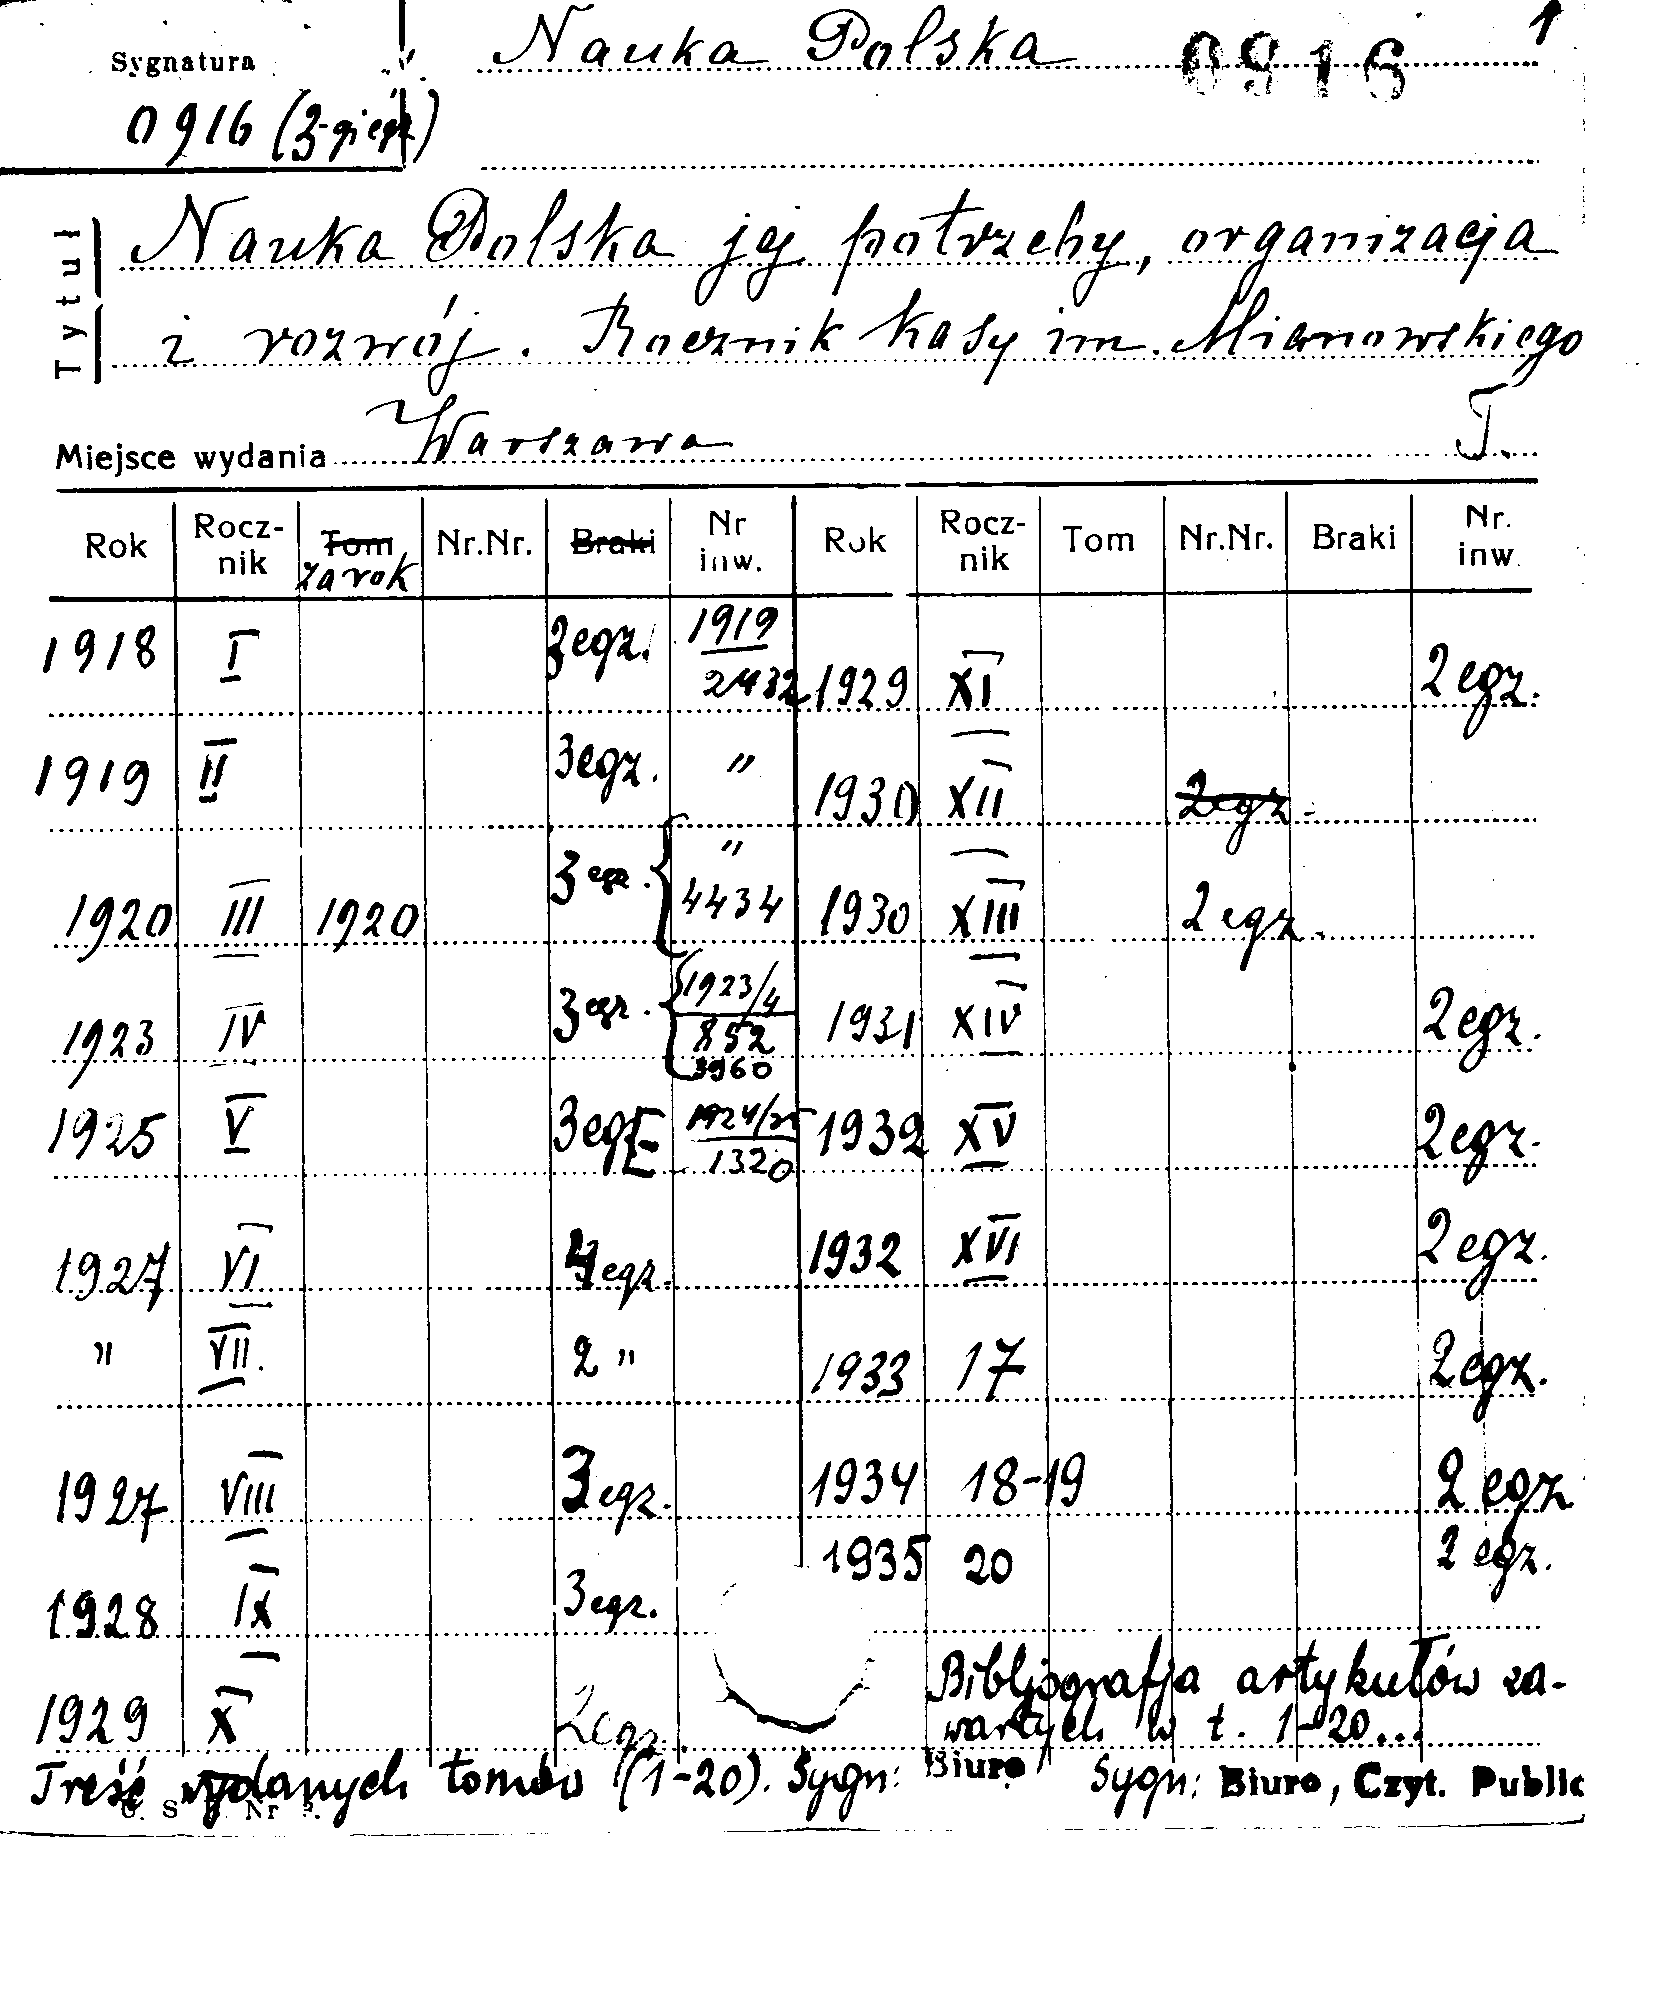 Sygnatura
Nauka Polska 0916 1
0916 (3-giegz)
Tytuł
Nauka Polska jej potrzeby, organizacja
i rozwój. Rocznik Kasy im. Mianowskiego
Miejsce wydania Warszawa T.
Rok Rocz-nik Tom za rok Nr.Nr. Braki Nr inw. Rok Rocz-nik Tom Nr.Nr. Braki Nr. inw.
1918 I 3 egz. 1919/2432 1929 XI 2 egz.
1919 II 3 egz. " 1930 XII 2 egz.
1920 III 1920 3 egz. { " 4434 1930 XIII 2 egz.
1923 IV 3 egz. { 1923/4 852 3960 1931 XIV 2 egz.
1925 V 3 egz. 1924/25 1320 1932 XV 2 egz.
1927 VI 4 egz. 1932 XVI 2 egz.
" VII. 2 " 1933 17 2 egz.
1927 VIII 3 egz. 1934 18-19 2 egz
1935 20 2 egz.
1928 IX 3 egz.
1929 X 2 egz.
Bibljografja artykułów za-
wartych w t. 1-20...
Treść wydanych tomów (1-20). Sygn: Biuro Sygn: Biuro, Czyt. Public